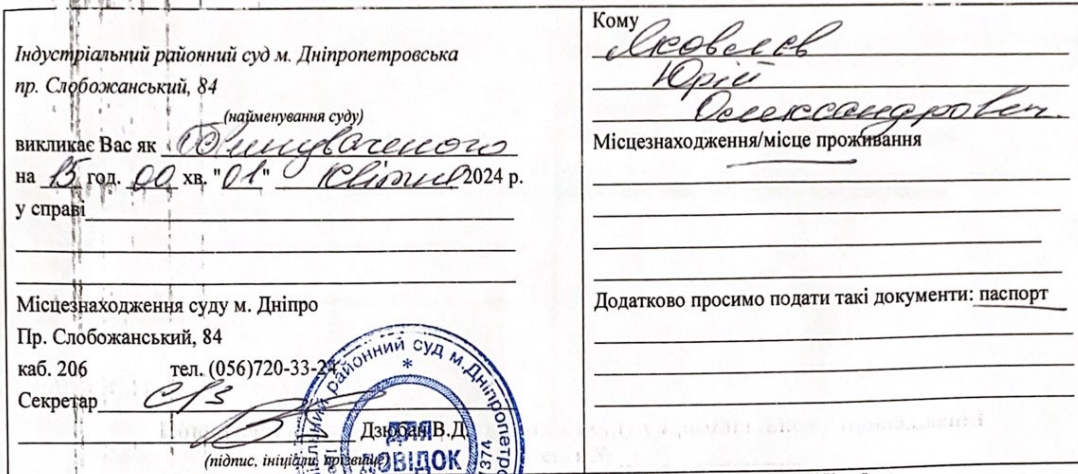 Індустріальний районний суд м. Дніпропетровська
пр. Слобожанський, 84
(найменування суду)
викликає Вас як Обвинуваченого
на 15 год. 00 хв. "01" квітня 2024 р.
у справі
Місцезнаходження суду м. Дніпро
Пр. Слобожанський, 84
каб. 206 тел. (056)720-33-24
Секретар с/з
Дзюба В.Д.
(підпис, ініціали, прізвище)
районний суд м. Дніпропетро
ДЛЯ
ПОВІДОК
Кому
Яковлєв
Юрій
Олександрович
Місцезнаходження/місце проживання
Додатково просимо подати такі документи: паспорт